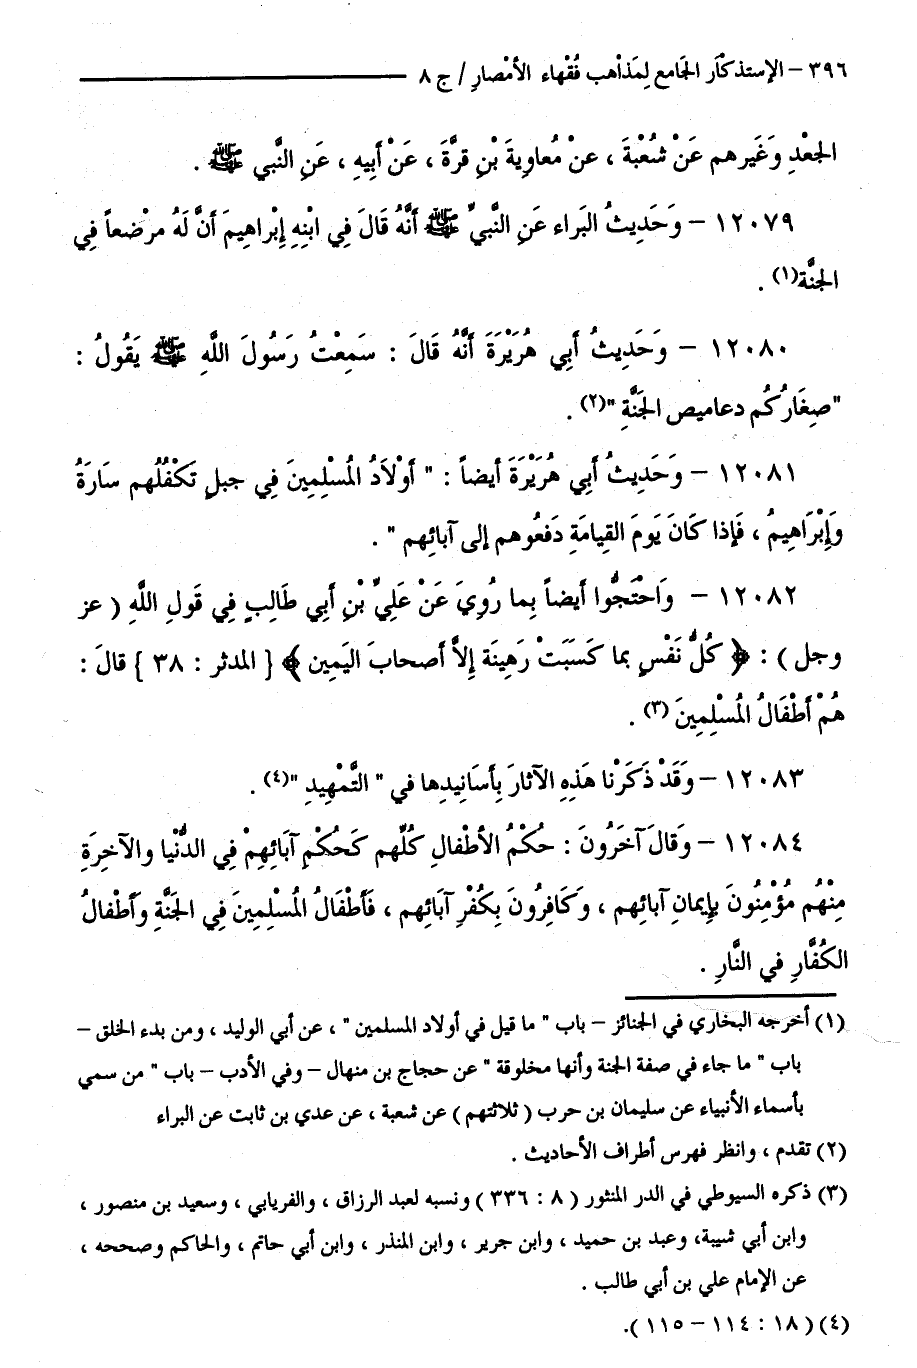 ٣٩٦ – الإستذكَار الجَامع لِمَذاهب فُقْهاء الأمْصارِ / ج ٨
الجَعْدِ وَغَيرهم عَنْ شُعْبَةَ ، عنْ مُعاوِيةَ بْنِ قرَّةَ ، عَنْ أَبيهِ ، عَنِ النَّبي ﷺ .
١٢٠٧٩ – وَحَدِيثُ البَراء عَنِ النَّبيِّ ﷺ أَنَّهُ قَالَ فِي ابْنِهِ إِبْراهِيمَ أَنَّ لَهُ مرْضعاً فِي
الجنَّة(١) .
١٢٠٨٠ – وَحَدِيثُ أَبِي هُرَيْرَةَ أَنَّهُ قَالَ : سَمِعْتُ رَسُولَ اللَّهِ ﷺ يَقُولُ :
"صِغَارُكُم دعاميص الجَنَّةِ "(٢) .
١٢٠٨١ – وَحَدِيثُ أَبِي هُرَيْرَةَ أَيضاً : " أَوْلَادُ المُسْلِمِينَ فِي جبلٍ تَكْفُلُهم سَارَةُ
وَإِبْرَاهِيمُ ، فَإذا كَانَ يَومَ القِيامَةِ دَفعُوهم إلى آبائِهم " .
١٢٠٨٢ – وَاحْتَجُّوا أَيضاً بِما رُوِيَ عَنْ عَلِيِّ بْنِ أَبي طَالِبٍ فِي قَولِ اللَّهِ ( عز
وجل ) : ﴿ كُلُّ نَفْسٍ بما كَسَبَتْ رَهِينَة إِلاَّ أَصحابَ اليَمِين ﴾ [ المدثر : ٣٨ ] قالَ :
هُمْ أَطْفَالُ المُسْلِمِينَ (٣) .
١٢٠٨٣ – وَقَدْ ذَكَرْنا هَذِهِ الآثارَ بِأَسَانِيدِها في " التَّمْهِيدِ "(٤) .
١٢٠٨٤ – وَقالَ آخَرُونَ : حُكْمُ الأطْفالِ كُلِّهم كَحُكْمِ آبَائِهِمْ فِي الدُّنْيا والآخِرَةِ
مِنْهُم مُؤْمِنُونَ بِإِيمانِ آبائِهم ، وَكَافِرُونَ بِكُفْرِ آبَائِهم ، فَأَطْفَالُ المُسْلِمِينَ فِي الجَنَّةِ وأَطْفالُ
الكُفَّارِ فِي النَّارِ .
(١) أخرجه البخاري في الجنائز – باب " ما قيل في أولاد المسلمين " ، عن أبي الوليد ، ومن بدء الخلق –
باب " ما جاء في صفة الجنة وأنها مخلوقة " عن حجاج بن منهال – وفي الأدب – باب " من سمي
بأسماء الأنبياء عن سليمان بن حرب ( ثلاثتهم ) عن شعبة ، عن عدي بن ثابت عن البراء
(٢) تقدم ، وانظر فهرس أطراف الأحاديث .
(٣) ذكره السيوطي في الدر المنثور ( ٨ : ٣٣٦ ) ونسبه لعبد الرزاق ، والفريابي ، وسعيد بن منصور ،
وابن أبي شيبة، وعبد بن حميد ، وابن جرير ، وابن المنذر ، وابن أبي حاتم ، والحاكم وصححه ،
عن الإمام علي بن أبي طالب .
(٤) ( ١٨ : ١١٤ – ١١٥ ).